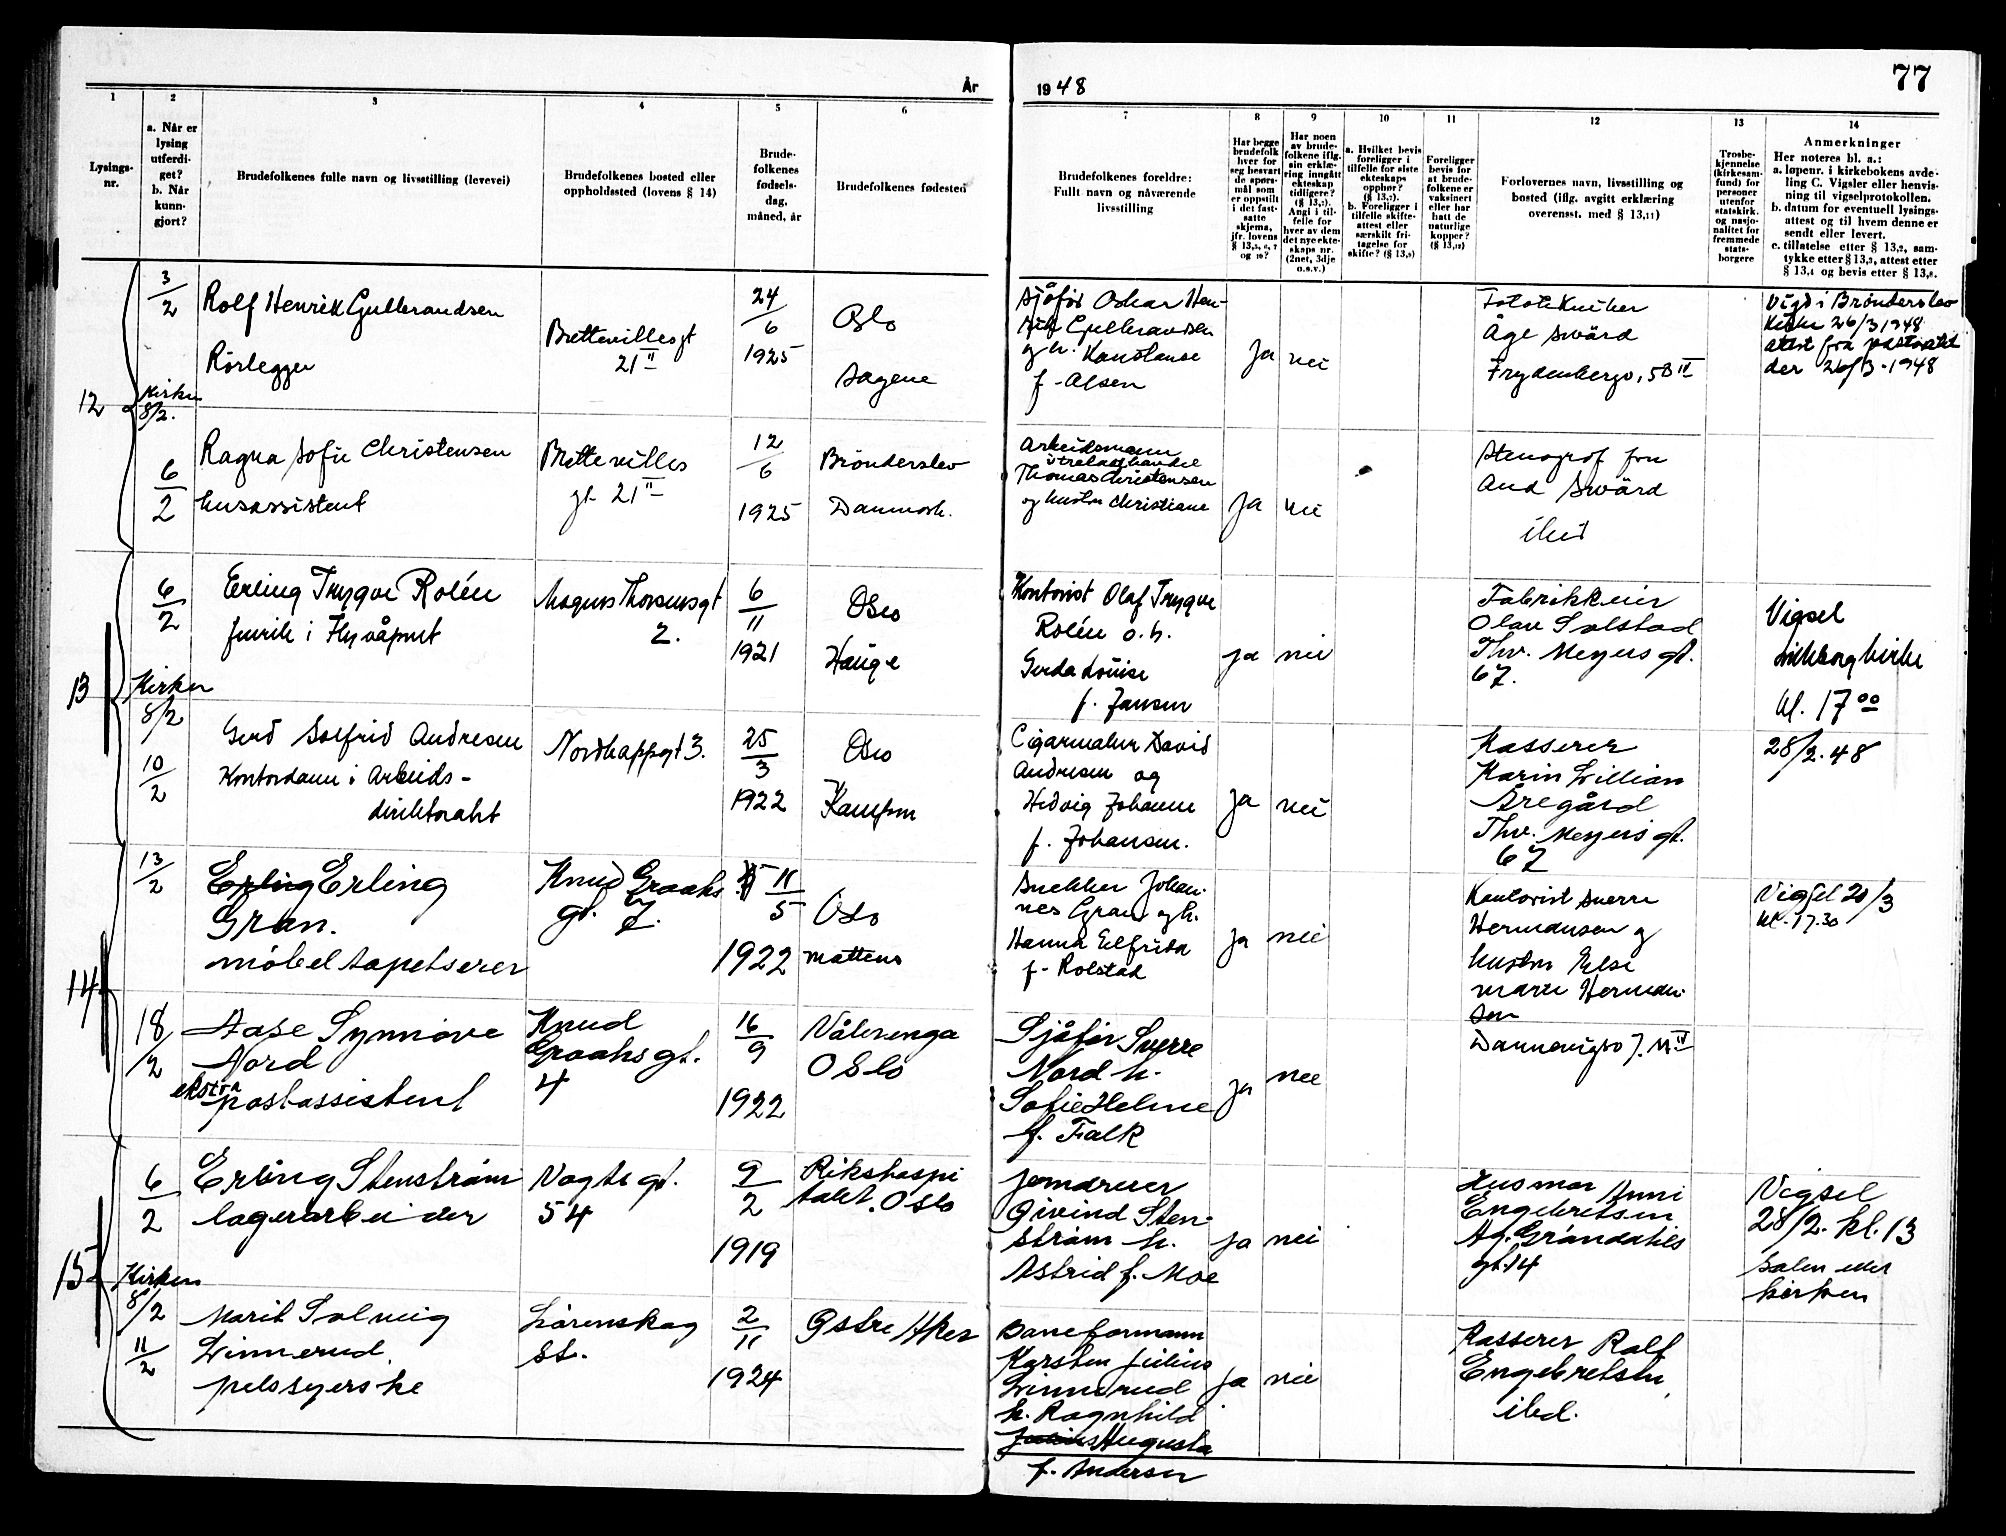 77
År
1948
1
2
3
4
5
6
7
8
9
10
11
12
13
14
Lysings-
nr.
a. Når er
lysing
utferdi-
get?
b. Når
kunn-
gjort?
Brudefolkenes fulle navn og livsstilling (levevei)
Brudefolkenes bosted eller
oppholdssted (lovens § 14)
Brude-
folkenes
fødsels-
dag,
måned, år
Brudefolkenes fødested
Brudefolkenes foreldre:
Fullt navn og nåværende
livsstilling
Har begge
brudefolk
hver for
seg besvart
de spørs-
mål som
er oppstilt
i det fast-
satte
skjema,
jfr. lovens
§ 13,
og 10?
Har noen
av brude-
folkene iflg.
sin erklæ-
ring inngått
ekteskap
tidligere?
(§ 13,7).
Angi i til-
felle for
hver av dem
det nye ekte-
skaps nr.
(2net, 3dje
o.s.v.)
a. Hvilket bevis
foreligger i
tilfelle for siste
ekteskaps
opphør?
(§ 13,7).
b. Foreligger i
tilfelle skifte-
attest eller
særskilt fri-
tagelse for
skifte? (§ 13,9)
Foreligger
bevis for
at brude-
folkene er
vaksinert
eller har
hatt de
naturlige
kopper?
(§ 13,12)
Forlovernes navn, livsstilling og
bosted (iflg. avgitt erklæring
overensst. med § 13,11)
Trosbe-
kjennelse
(kirkesam-
fund) for
personer
utenfor
statskirk.
og nasjo-
nalitet for
fremmede
stats-
borgere
Anmerkninger
Her noteres bl. a.:
a. løpenr. i kirkebokens avde-
ling C. Vigsler eller henvis-
ning til vigselprotokollen.
b. datum for eventuell lysings-
attest og til hvem denne er
sendt eller levert.
c. tillatelse etter § 13,2, sam-
tykke etter § 13,3, attest etter
§ 13,4 og bevis etter § 13,8.
12
3/2
Kirken
8/2.
Rolf Henrik Gulbrandsen
Rørlegger
Brettevillesgt
21 II
24/6
1925
Oslo
Sagene
Sjåfør Oskar Hen-
rik Gulbrandsen
og h. Konstanse
f. Olsen
ja
nei
Fototekniker
Åge Swärd
Frydenbergv, 5B IV
Vigd i Brönderslev
Kirke 26/3 1948
attest fra pastoratet
der 26/3-1948
6/2
Ragna Sofie Christensen
husassistent
Brettevilles
gt. 21 II
12/6
1925
Brönderslev
Danmark.
Arbeidsmann
i trelasthandel
Thomas Christensen
og hustru Christiane
ja
nei
Stenograf fru
Aud Swärd
ibid
13
6/2
Kirken
8/2
Erling Trygve Rolén
fenrik i Flyvåpnet
Magnus Thorsensgt
2.
6/11
1921
Oslo
Hauge
Kontorist Olaf Trygve
Rolén o.h.
Gerda Louise
f. Jansen
ja
nei
Fabrikkeier
Olav Solstad
Thv. Meyers gt.
67.
Vigsel
Lilleborg kirke
kl. 17 00
28/2.48
10/2
Gerd Solfrid Andresen
Kontordame i Arbeids-
direktoratet
Nordkappgt 3.
25/3
1922
Oslo
Kampen
Cigarmaker David
Andresen og
Hedvig Johanne
f. Johansen.
ja
nei
Kasserer
Karin Lillian
Åregård
Thv. Meyers gt.
67
14
13/2
Erling Erling
Gran.
møbeltapetserer
Knud Graahs
gt. 7.
11/5
1922
Oslo
Matteus
Snekker Johan-
nes Gran og h.
Hanna Elfrida
f. Rolstad
ja
nei
Kontorist Sverre
Hermansen og
hustru Else
Marie Herman-
sen
Vigsel 20/3
kl. 17.30
18/2
Aase Synnøve
Nord
ekstra
postassistent
Knud
Graahs gt.
4
16/9
1922
Vålerenga
Oslo
Sjåfør Sverre
Nord h.
Sofie Helene
f. Falk
ja
nei
15
6/2
Kirken
8/2
Erling Stenstrøm
lagerarbeider
Vogts gt.
54
9/2
1919
Rikshospi
talet. Oslo
Jerndreier
Øivind Sten-
strøm h.
Astrid f. Moe
ja
nei
Husmor Anni
Engebretsen
Ag. Grøndahls
gt. 14
Vigsel
28/2. kl. 13
Salen eller
kirken
11/2
Marit Solveig
Linnerud
pelssyerske
Lørenskog
st.
2/11
1924
Østre Aker
Baneformann
Karsten Julius
Linnerud
h. Ragnhild
Augusta
f. Andersen
ja
nei
Kasserer Rolf
Engebretsen,
ibd.